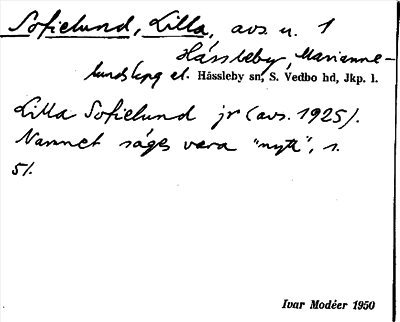 Sofielund, Lilla, avs. u. 1
Hässleby, Marianne-
lunds kpg el. Hässleby sn, S. Vedbo hd, Jkp. l.
Lilla Sofielund jr (avs. 1925).
Namnet säges vara "nytt", s.
51.
Ivar Modéer 1950